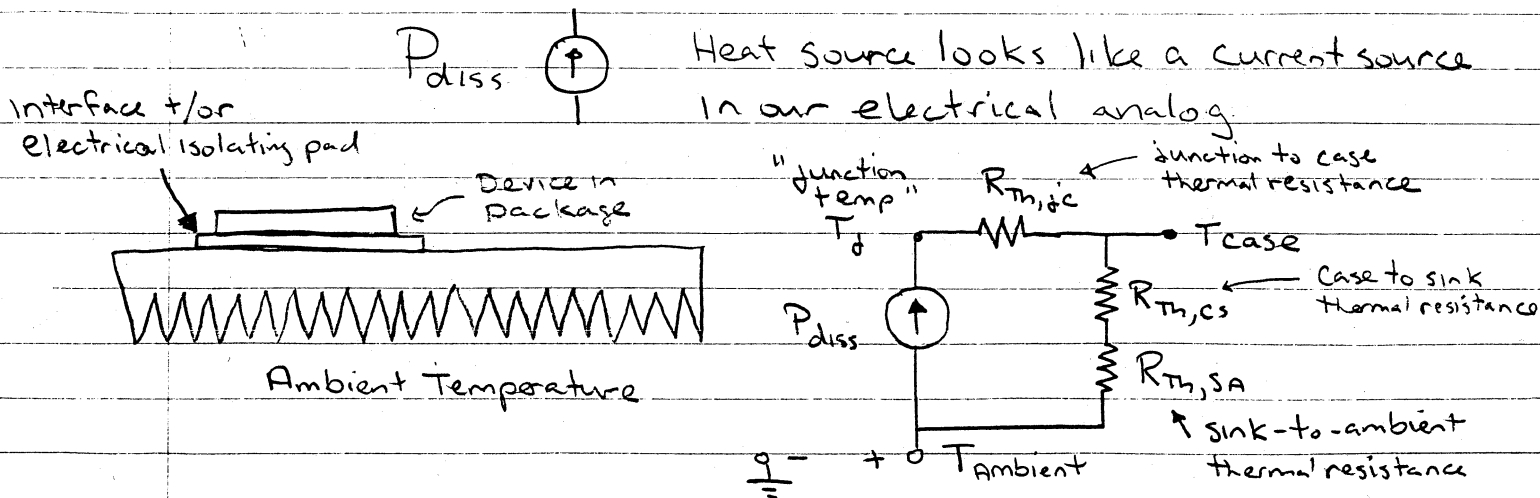 Pdiss
Heat source looks like a current source
in our electrical analog
Interface +/or
electrical isolating pad
Device in
package
Ambient Temperature
"junction
temp"
Tj
RTh,jc
junction to case
thermal resistance
Tcase
RTh,cs
Case to sink
thermal resistance
Pdiss
RTh,SA
sink-to-ambient
thermal resistance
- + TAmbient